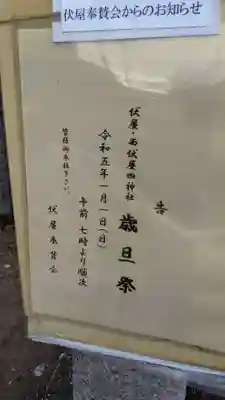 伏屋奉賛会からのお知らせ
告
歳旦祭
伏屋・西伏屋四神社
令和五年一月一日(日)
午前七時より順次
皆様御参拝下さい。
伏屋奉賛会